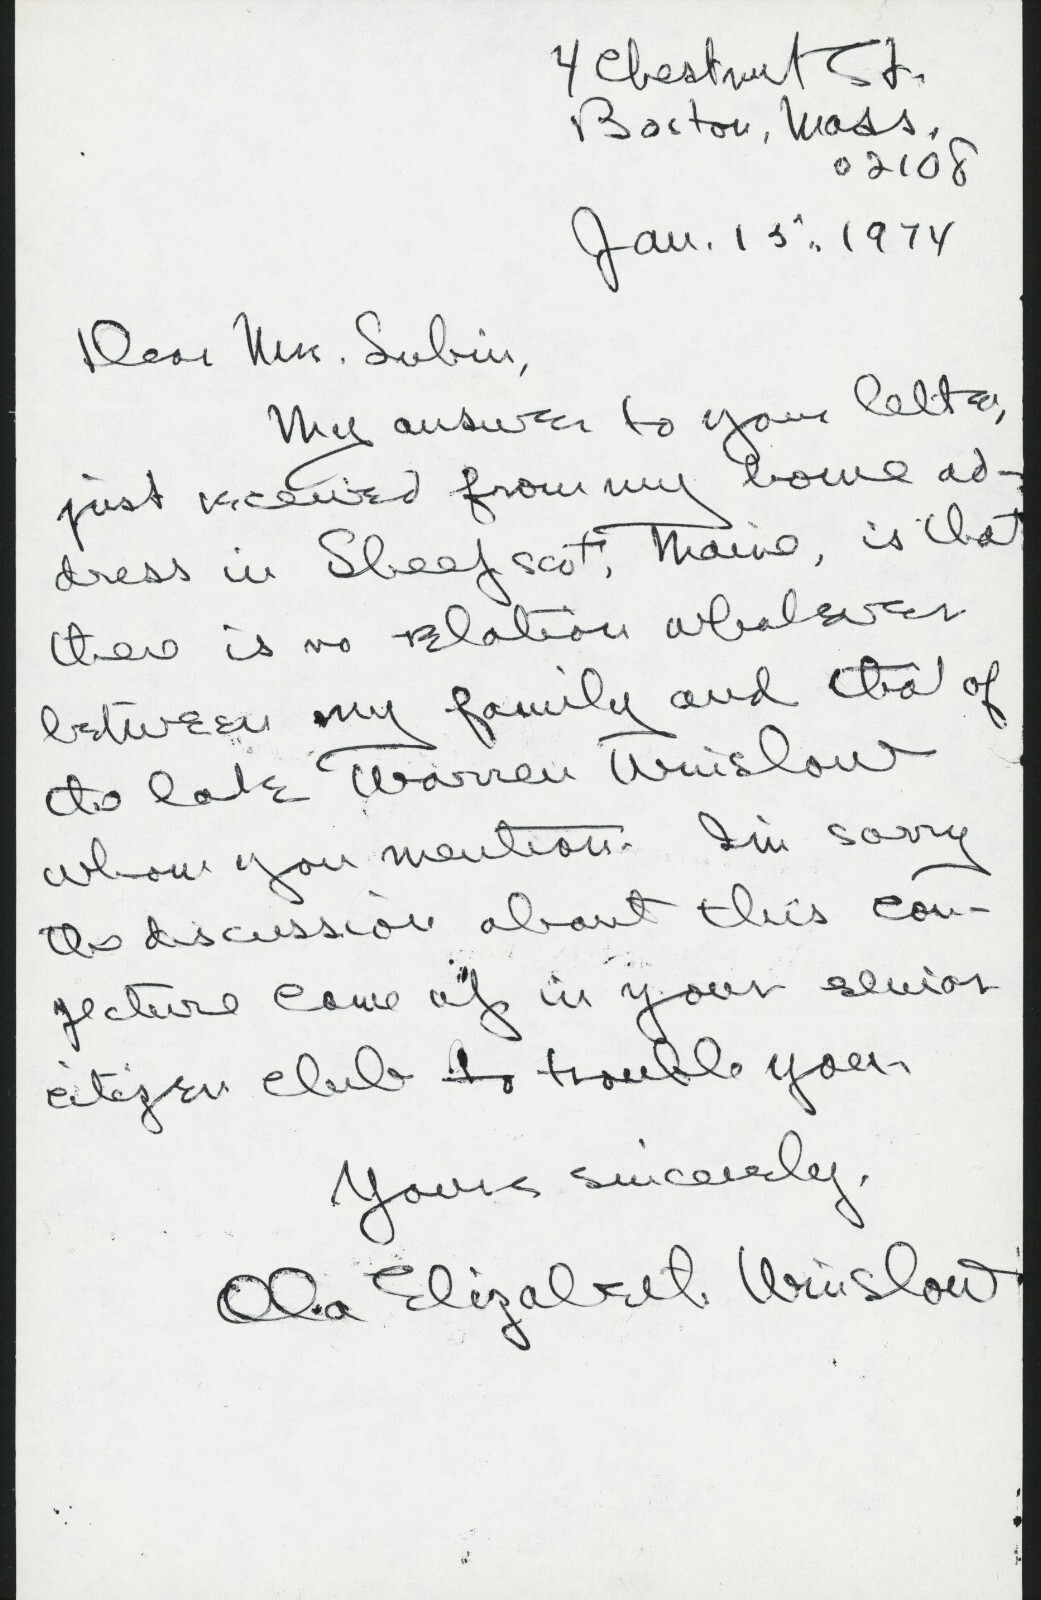 4 Chestnut St.
Boston, Mass.
02108
Jan. 15, 1974
Dear Mrs. Subin,
My answer to your letter,
just received from my home ad-
dress in Sheepscot, Maine, is that
there is no relation whatever
between my family and that of
the late Warren Winslow
whom you mention. I'm sorry
the discussion about this con-
jecture came up in your senior
citizen club to trouble you.
Yours sincerely,
Ola Elizabeth Winslow